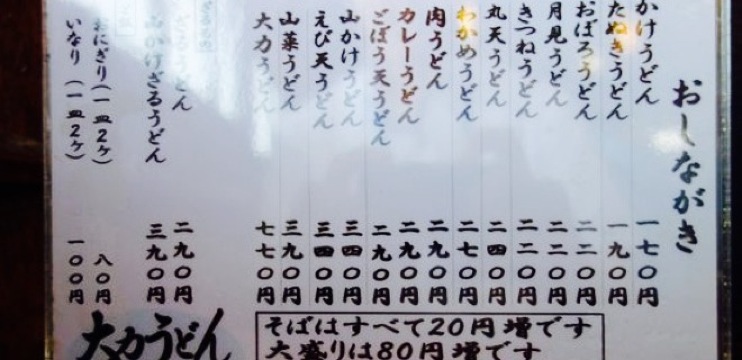 おしながき
かけうどん 一七〇円
たぬきうどん 一九〇円
おぼろうどん 二二〇円
月見うどん 二二〇円
きつねうどん 二二〇円
丸天うどん 二四〇円
わかめうどん 二七〇円
肉うどん 二九〇円
カレーうどん 二九〇円
ごぼう天うどん 二九〇円
山かけうどん 三四〇円
えび天うどん 三四〇円
山菜うどん 三九〇円
大力うどん 七七〇円
ざるうどん 二九〇円
山かけざるうどん 三九〇円
おにぎり(一皿2ヶ) 八〇円
いなり(一皿2ヶ) 一〇〇円
大力うどん
そばはすべて20円増です
大盛りは80円増です